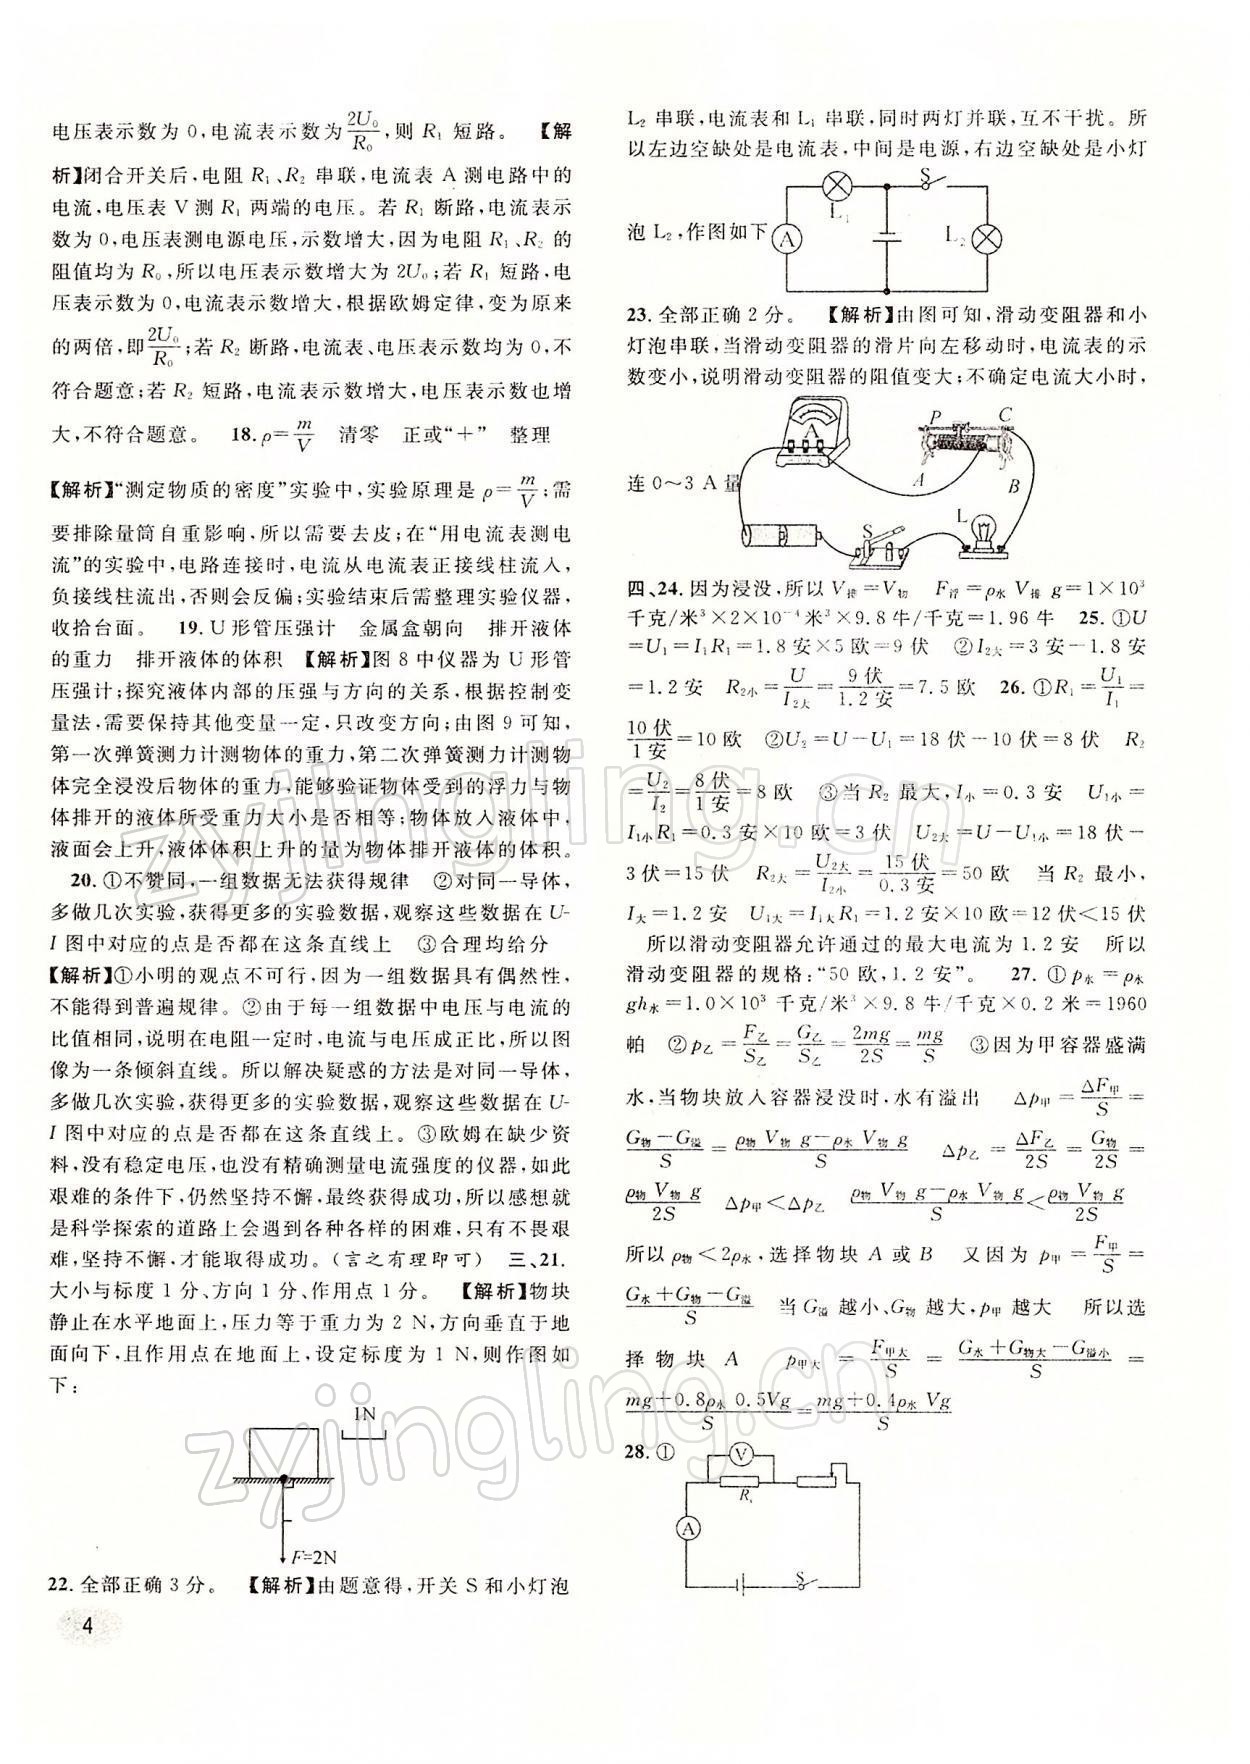 电压表示数为 0,电流表示数为2U₀/R₀,则 R₁ 短路。 【解
析】闭合开关后,电阻 R₁、R₂ 串联,电流表 A 测电路中的
电流,电压表 V 测 R₁ 两端的电压。若 R₁ 断路,电流表示
数为 0,电压表测电源电压,示数增大,因为电阻 R₁、R₂ 的
阻值均为 R₀,所以电压表示数增大为 2U₀;若 R₁ 短路,电
压表示数为 0,电流表示数增大,根据欧姆定律,变为原来
的两倍,即2U₀/R₀;若 R₂ 断路,电流表、电压表示数均为 0,不
符合题意;若 R₂ 短路,电流表示数增大,电压表示数也增
大,不符合题意。 18. ρ=m/V 清零 正或“+” 整理
【解析】“测定物质的密度”实验中,实验原理是 ρ=m/V;需
要排除量筒自重影响,所以需要去皮;在“用电流表测电
流”的实验中,电路连接时,电流从电流表正接线柱流入,
负接线柱流出,否则会反偏;实验结束后需整理实验仪器,
收拾台面。 19. U 形管压强计 金属盒朝向 排开液体
的重力 排开液体的体积 【解析】图 8 中仪器为 U 形管
压强计;探究液体内部的压强与方向的关系,根据控制变
量法,需要保持其他变量一定,只改变方向;由图 9 可知,
第一次弹簧测力计测物体的重力,第二次弹簧测力计测物
体完全浸没后物体的重力,能够验证物体受到的浮力与物
体排开的液体所受重力大小是否相等;物体放入液体中,
液面会上升,液体体积上升的量为物体排开液体的体积。
20. ①不赞同,一组数据无法获得规律 ②对同一导体,
多做几次实验,获得更多的实验数据,观察这些数据在 U-
I 图中对应的点是否都在这条直线上 ③合理均给分
【解析】①小明的观点不可行,因为一组数据具有偶然性,
不能得到普遍规律。②由于每一组数据中电压与电流的
比值相同,说明在电阻一定时,电流与电压成正比,所以图
像为一条倾斜直线。所以解决疑惑的方法是对同一导体,
多做几次实验,获得更多的实验数据,观察这些数据在 U-
I 图中对应的点是否都在这条直线上。③欧姆在缺少资
料,没有稳定电压,也没有精确测量电流强度的仪器,如此
艰难的条件下,仍然坚持不懈,最终获得成功,所以感想就
是科学探索的道路上会遇到各种各样的困难,只有不畏艰
难,坚持不懈,才能取得成功。(言之有理即可) 三、21.
大小与标度 1 分、方向 1 分、作用点 1 分。 【解析】物块
静止在水平地面上,压力等于重力为 2 N,方向垂直于地
面向下,且作用点在地面上,设定标度为 1 N,则作图如
下:
1N
F=2N
22. 全部正确 3 分。 【解析】由题意得,开关 S 和小灯泡
4
L₂ 串联,电流表和 L₁ 串联,同时两灯并联,互不干扰。所
以左边空缺处是电流表,中间是电源,右边空缺处是小灯
泡 L₂,作图如下
L₁ S A L₂
23. 全部正确 2 分。 【解析】由图可知,滑动变阻器和小
灯泡串联,当滑动变阻器的滑片向左移动时,电流表的示
数变小,说明滑动变阻器的阻值变大;不确定电流大小时,
连 0～3 A 量
A P C A B S L
四、24. 因为浸没,所以 V排=V物 F浮=ρ水 V排 g=1×10³
千克/米³×2×10⁻⁴米³×9.8 牛/千克=1.96 牛 25. ①U
=U₁=I₁R₁=1.8 安×5 欧=9 伏 ②I₂大=3 安-1.8 安
=1.2 安 R₂小=U/I₂大=9 伏/1.2 安=7.5 欧 26. ①R₁=U₁/I₁=
10 伏/1 安=10 欧 ②U₂=U-U₁=18 伏-10 伏=8 伏 R₂
=U₂/I₂=8 伏/1 安=8 欧 ③当 R₂ 最大,I小=0.3 安 U₁小=
I₁小R₁=0.3 安×10 欧=3 伏 U₂大=U-U₁小=18 伏-
3 伏=15 伏 R₂大=U₂大/I₂小=15 伏/0.3 安=50 欧 当 R₂ 最小,
I大=1.2 安 U₁大=I₁大R₁=1.2 安×10 欧=12 伏<15 伏
所以滑动变阻器允许通过的最大电流为 1.2 安 所以
滑动变阻器的规格:“50 欧,1.2 安”。 27. ①p水=ρ水
gh水=1.0×10³ 千克/米³×9.8 牛/千克×0.2 米=1960
帕 ②p乙=F乙/S乙=G乙/S乙=2mg/2S=mg/S ③因为甲容器盛满
水,当物块放入容器浸没时,水有溢出 Δp甲=ΔF甲/S=
(G物-G溢)/S=(ρ物 V物 g-ρ水 V物 g)/S Δp乙=ΔF乙/2S=G物/2S=
ρ物 V物 g/2S Δp甲<Δp乙 (ρ物 V物 g-ρ水 V物 g)/S<ρ物 V物 g/2S
所以 ρ物<2ρ水,选择物块 A 或 B 又因为 p甲=F甲/S=
(G水+G物-G溢)/S 当 G溢 越小、G物 越大,p甲 越大 所以选
择物块 A p甲大=F甲大/S=(G水+G物大-G溢小)/S=
(mg+0.8ρ水 0.5Vg)/S=(mg+0.4ρ水 Vg)/S
28. ①
V Rₓ A S
zyjingling.cn
zyjingling.cn